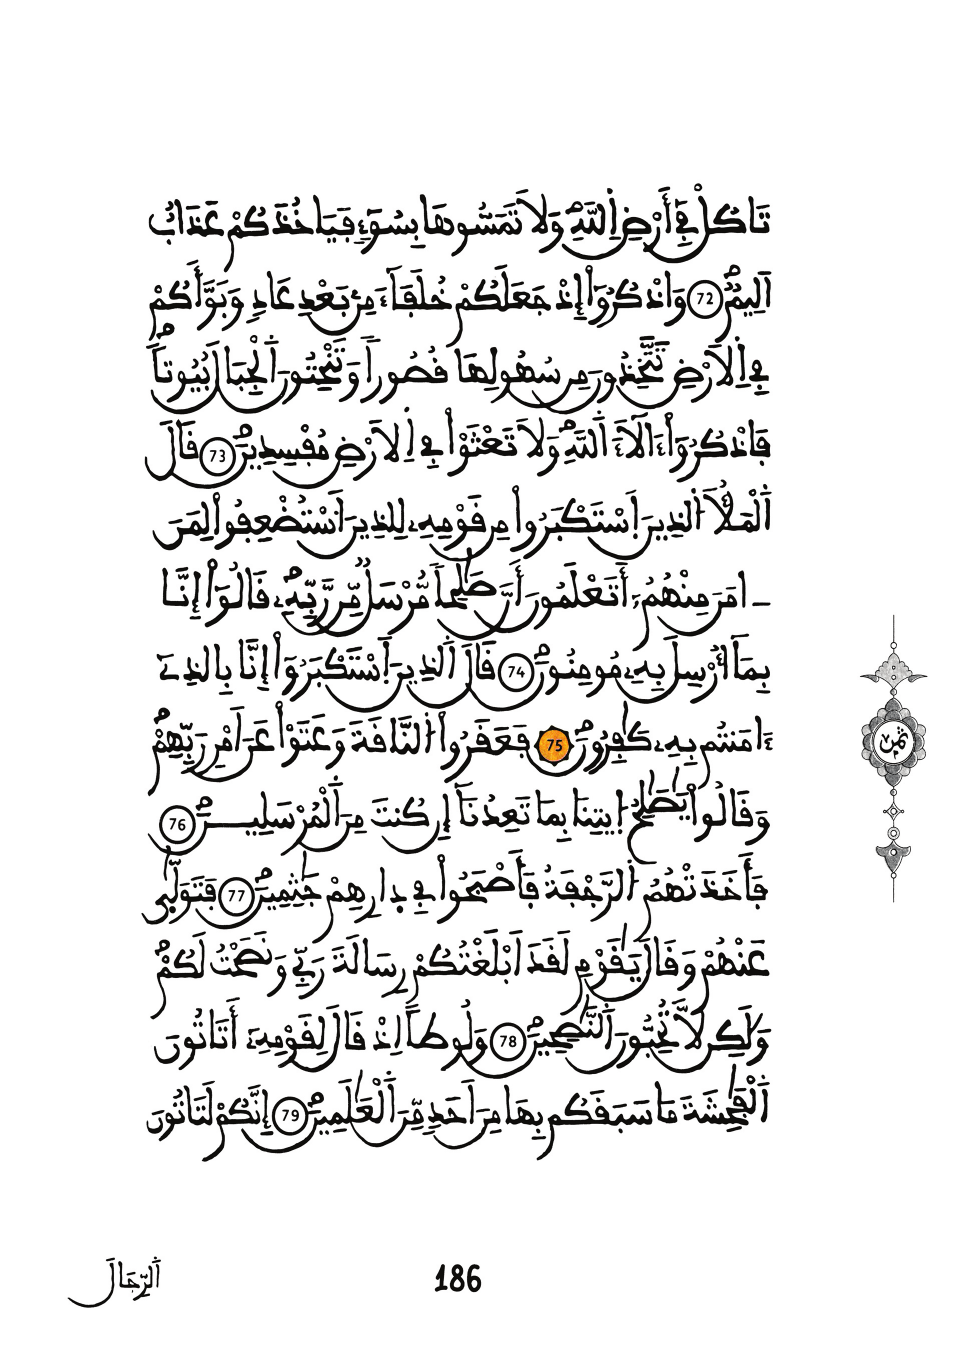 تَاكُلْ فِےٓ أَرْضِ اِ۬للَّهِۖ وَلَا تَمَسُّوهَا بِسُوٓءٖ فَيَاخُذَكُمْ عَذَابٌ
اَلِيمٞۖ 72 وَاذْكُرُوٓاْ إِذْ جَعَلَكُمْ خُلَفَآءَ مِنۢ بَعْدِ عَادٖ وَبَوَّأَكُمْ
فِے اِ۬لَارْضِ تَتَّخِذُونَ مِن سُهُولِهَا قُصُوراٗ وَتَنْحِتُونَ اَ۬لْجِبَالَ بُيُوتاٗۖ
فَاذْكُرُوٓاْ ءَالَآءَ اَ۬للَّهِۖ وَلَا تَعْثَوْاْ فِے اِ۬لَارْضِ مُفْسِدِينَۖ 73 قَالَ
اَ۬لْمَلَأُ اُ۬لذِينَ اَ۪سْتَكْبَرُواْ مِن قَوْمِهِۦ لِلذِينَ اَ۟سْتُضْعِفُواْ لِمَنَ
_ امَنَ مِنْهُمُۥٓ أَتَعْلَمُونَ أَنَّ صَٰلِحاٗ مُّرْسَلٞ مِّن رَّبِّهِۦۖ قَالُوٓاْ إِنَّا
بِمَآ أُرْسِلَ بِهِۦ مُومِنُونَۖ 74 قَالَ اَ۬لذِينَ اَ۪سْتَكْبَرُوٓاْ إِنَّا بِالذِےٓ
ءَامَنتُم بِهِۦ كَٰفِرُونَۖ 75 فَعَقَرُواْ اُ۬لنَّاقَةَ وَعَتَوْاْ عَنَ اَمْرِ رَبِّهِمْۖ
وَقَالُواْ يَٰصَٰلِحُ اُ۪يتِنَا بِمَا تَعِدُنَآ إِن كُنتَ مِنَ اَ۬لْمُرْسَلِينَۖ 76
فَأَخَذَتْهُمُ اُ۬لرَّجْفَةُ فَأَصْبَحُواْ فِے دِارِهِمْ جَٰثِمِينَۖ 77 فَتَوَلّ۪ىٰ
عَنْهُمْ وَقَالَ يَٰقَوْمِ لَقَدَ اَبْلَغْتُكُمْ رِسَالَةَ رَبِّے وَنَصَحْتُ لَكُمْۖ
وَلَٰكِن لَّا تُحِبُّونَ اَ۬لنَّٰصِحِينَۖ 78 وَلُوطاً اِذْ قَالَ لِقَوْمِهِۦٓ أَتَاتُونَ
اَ۬لْفَٰحِشَةَ مَا سَبَقَكُم بِهَا مِنَ اَحَدٖ مِّنَ اَ۬لْعَٰلَمِينَۖ 79 إِنَّكُمْ لَتَاتُونَ
ثمن
اَ۬لرِّجَالَ
186